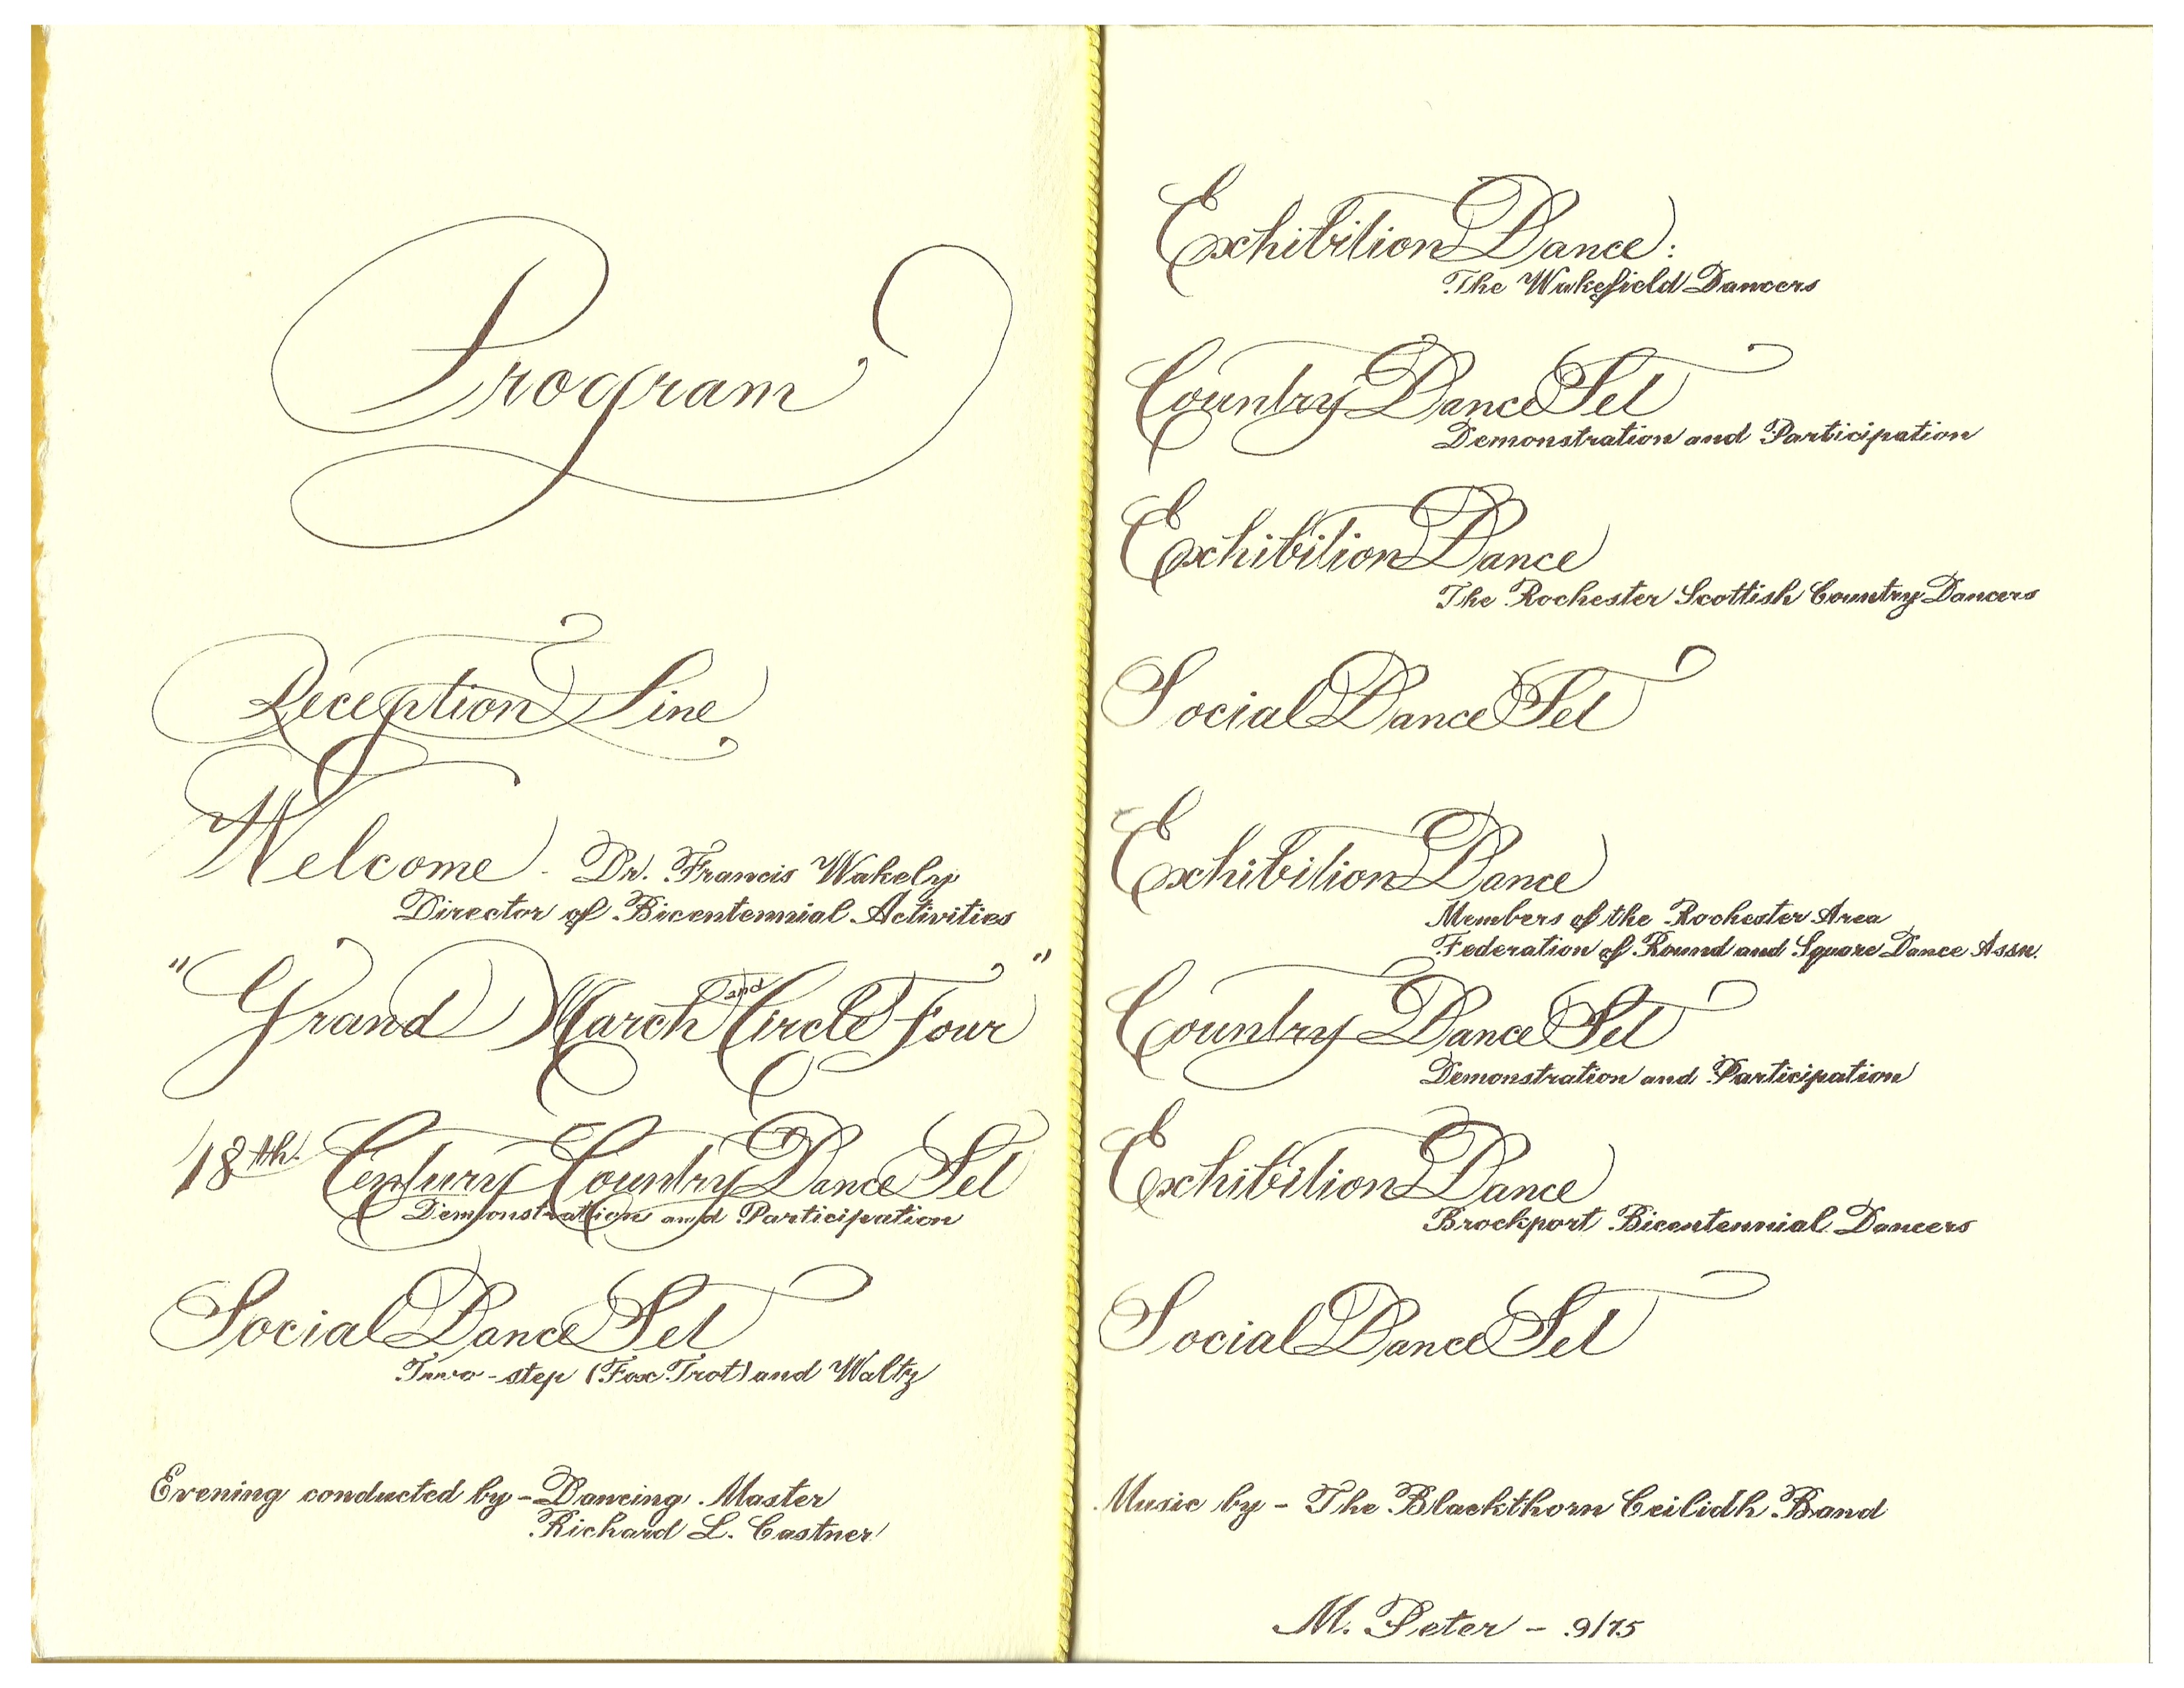 Program
Reception Line
Welcome - Dr. Francis Wakely
Director of Bicentennial Activities
"Grand March and Circle Four"
18th. Century Country Dance Set
Demonstration and Participation
Social Dance Set
Two-step (Fox Trot) and Waltz
Evening conducted by - Dancing Master
Richard L. Castner
Exhibition Dance:
The Wakefield Dancers
Country Dance Set
Demonstration and Participation
Exhibition Dance
The Rochester Scottish Country Dancers
Social Dance Set
Exhibition Dance
Members of the Rochester Area
Federation of Round and Square Dance Assn.
Country Dance Set
Demonstration and Participation
Exhibition Dance
Brockport Bicentennial Dancers
Social Dance Set
Music by - The Blackthorn Ceilidh Band
M. Peter - 9/75